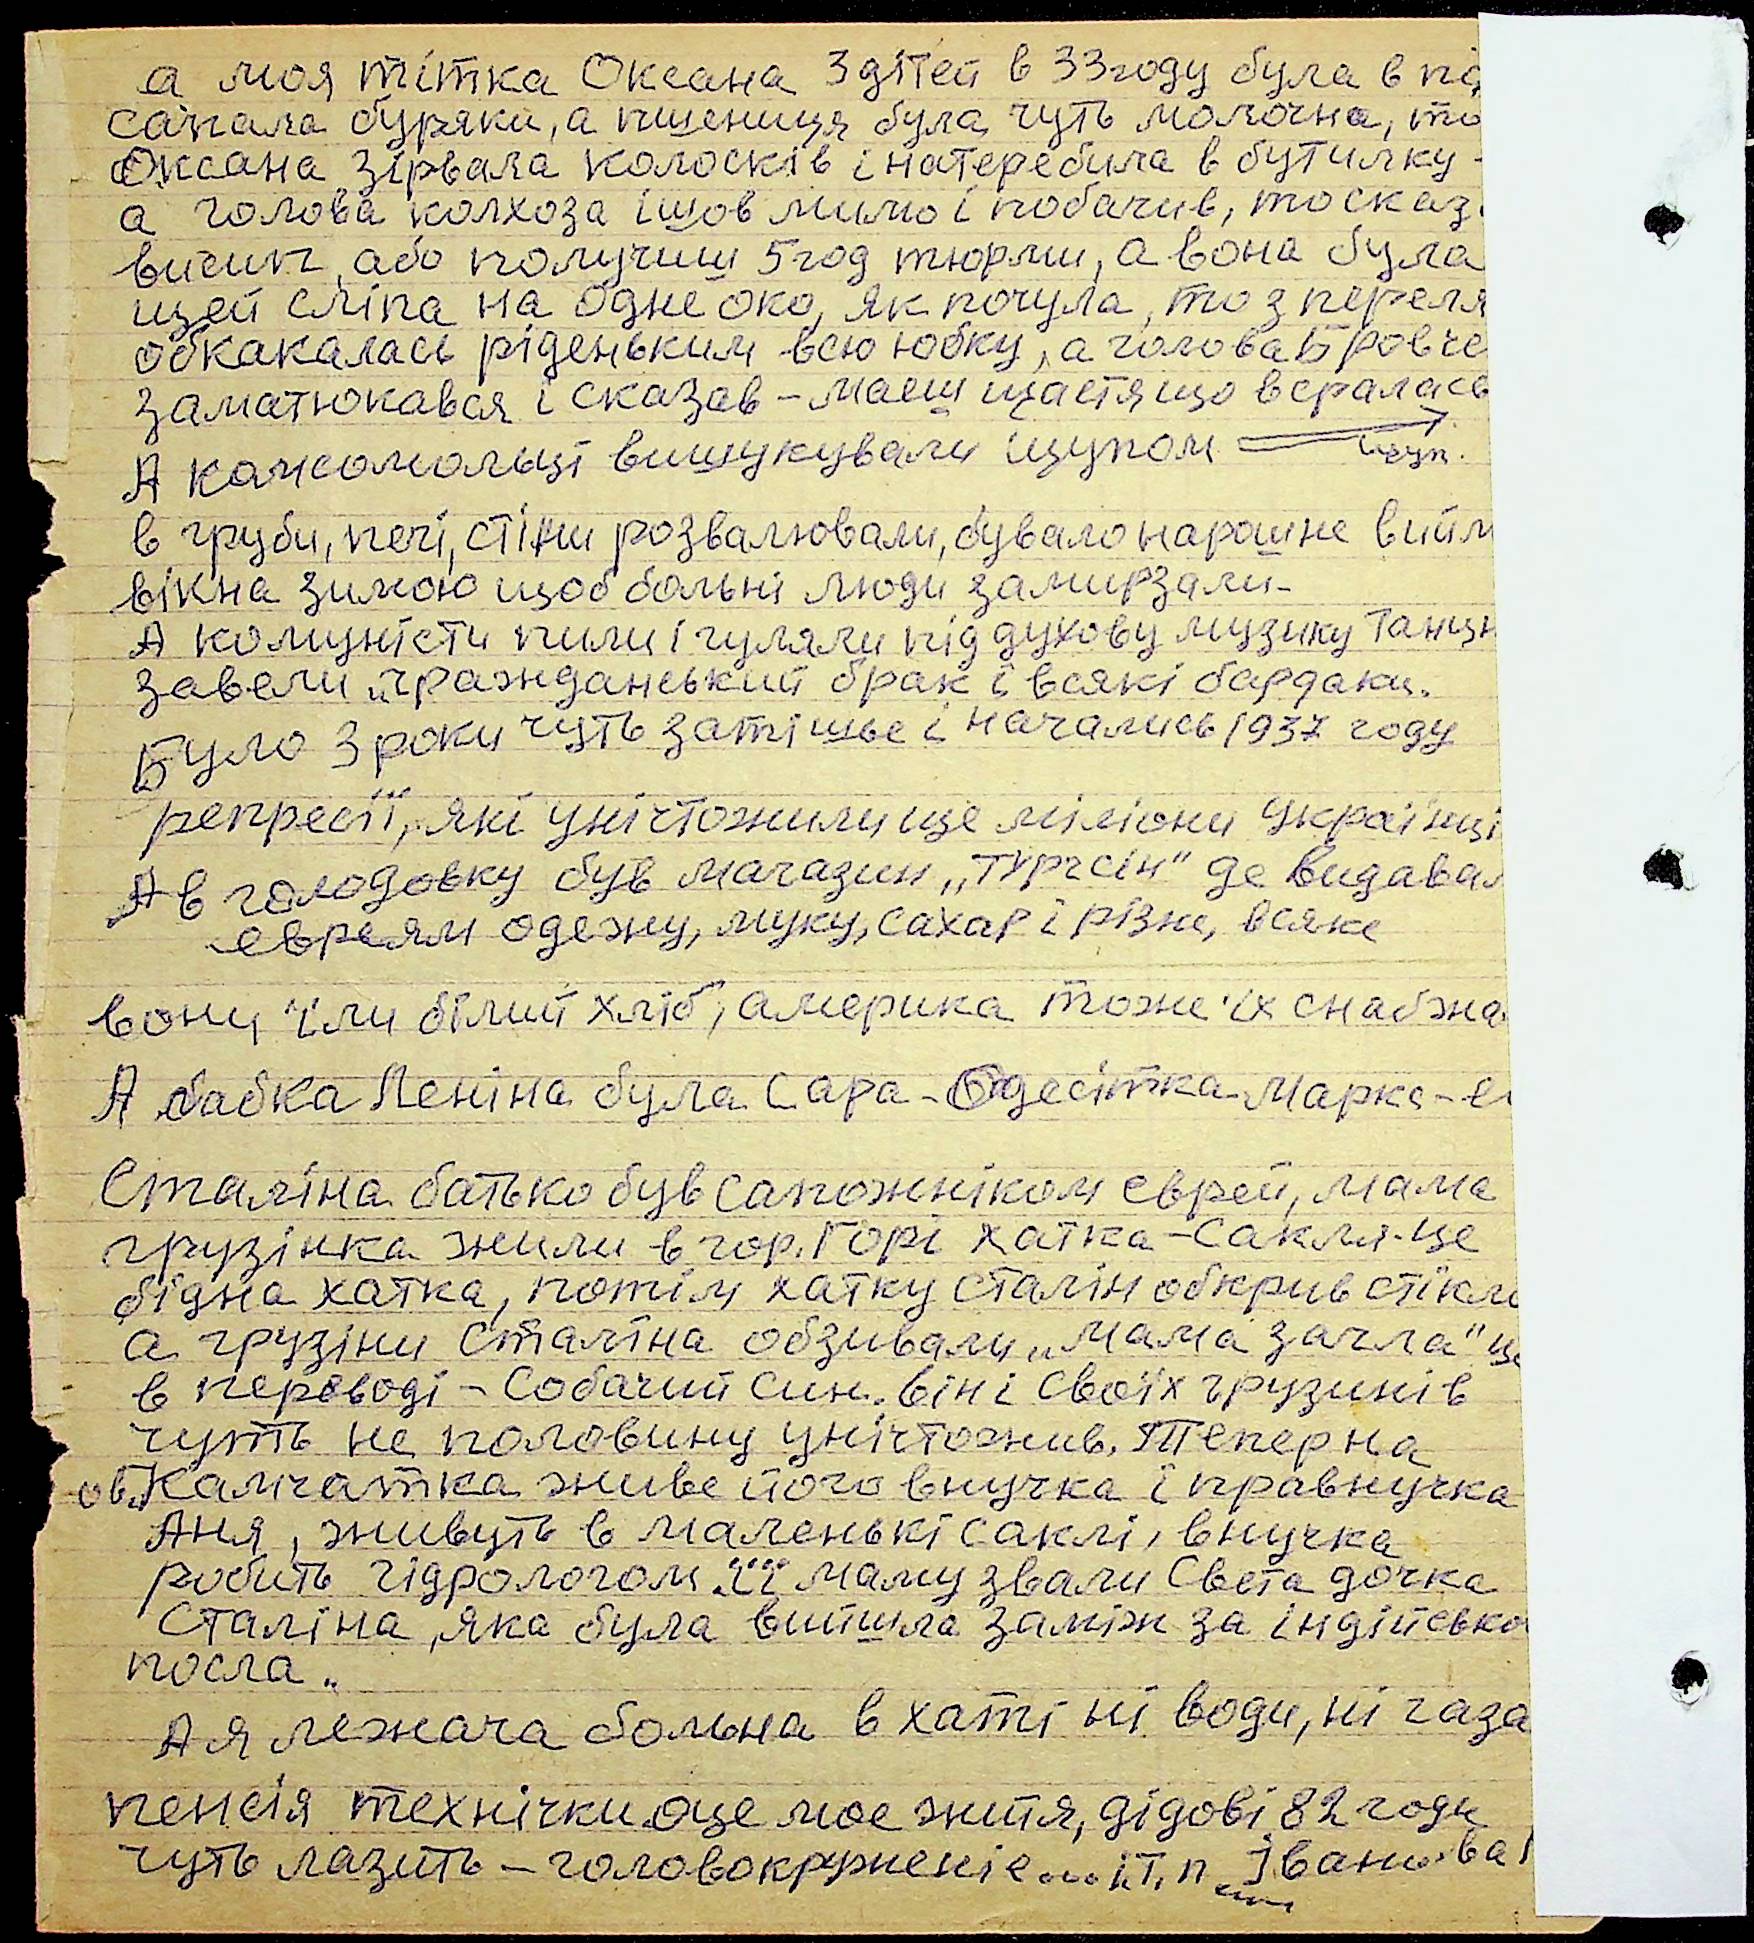 а моя тітка Оксана 3 дітей в 33 году була в
сапала буряки, а пшениця була чуть молочна, то
Оксана зірвала колосків і натеребила в бутилку -
а голова колхоза ішов мимо і побачив, то сказ
висип, або получиш 5 год тюрми, а вона була
щей сліпа на одне око, як почула, то з переля
обкакалась ріденьким всю юбку, а голова Бровче
заматюкався і сказав - маеш щастя що всралась
А комсомольці вишукували щупом щуп.
в груби, печі, стіни розвалювали, бувало нарошне вийм
вікна зимою щоб больні люди замирзали -
А комуністи пили і гуляли під духову музику танцю
завели „гражданський брак і всякі бардаки.
Було 3 роки чуть затішье і начались 1937 году
репресії, які унічтожили ще міліони українці
А в голодовку був магазин „Тургсін" де видавал
евреям одежу, муку, сахар і різне, всяке
вони їли білий хліб, америка тоже їх снабжа
А бабка Леніна була Сара - Одесітка Маркс -
Сталіна батько був сапожніком еврей, мама
грузінка жили в гор. Горі хатка - Сакля - це
бідна хатка, потім хатку Сталін обкрив стікло
а грузіни Сталіна обзивали „мама загла" це
в переводі - Собачий син. він і своїх грузинів
чуть не половину унічтожив. Тепер на
ов. Камчатка живе його внучка і правнучка
Аня, живуть в маленькі саклі, внучка
робить гідрологом. її маму звали Света дочка
Сталіна, яка була вийшла заміж за індійсько
посла.
А я лежача больна в хаті ні води, ні газа
пенсія технічки. оце мое життя, дідові 82 годи
чуть лазить - головокруженіе.... і т. п